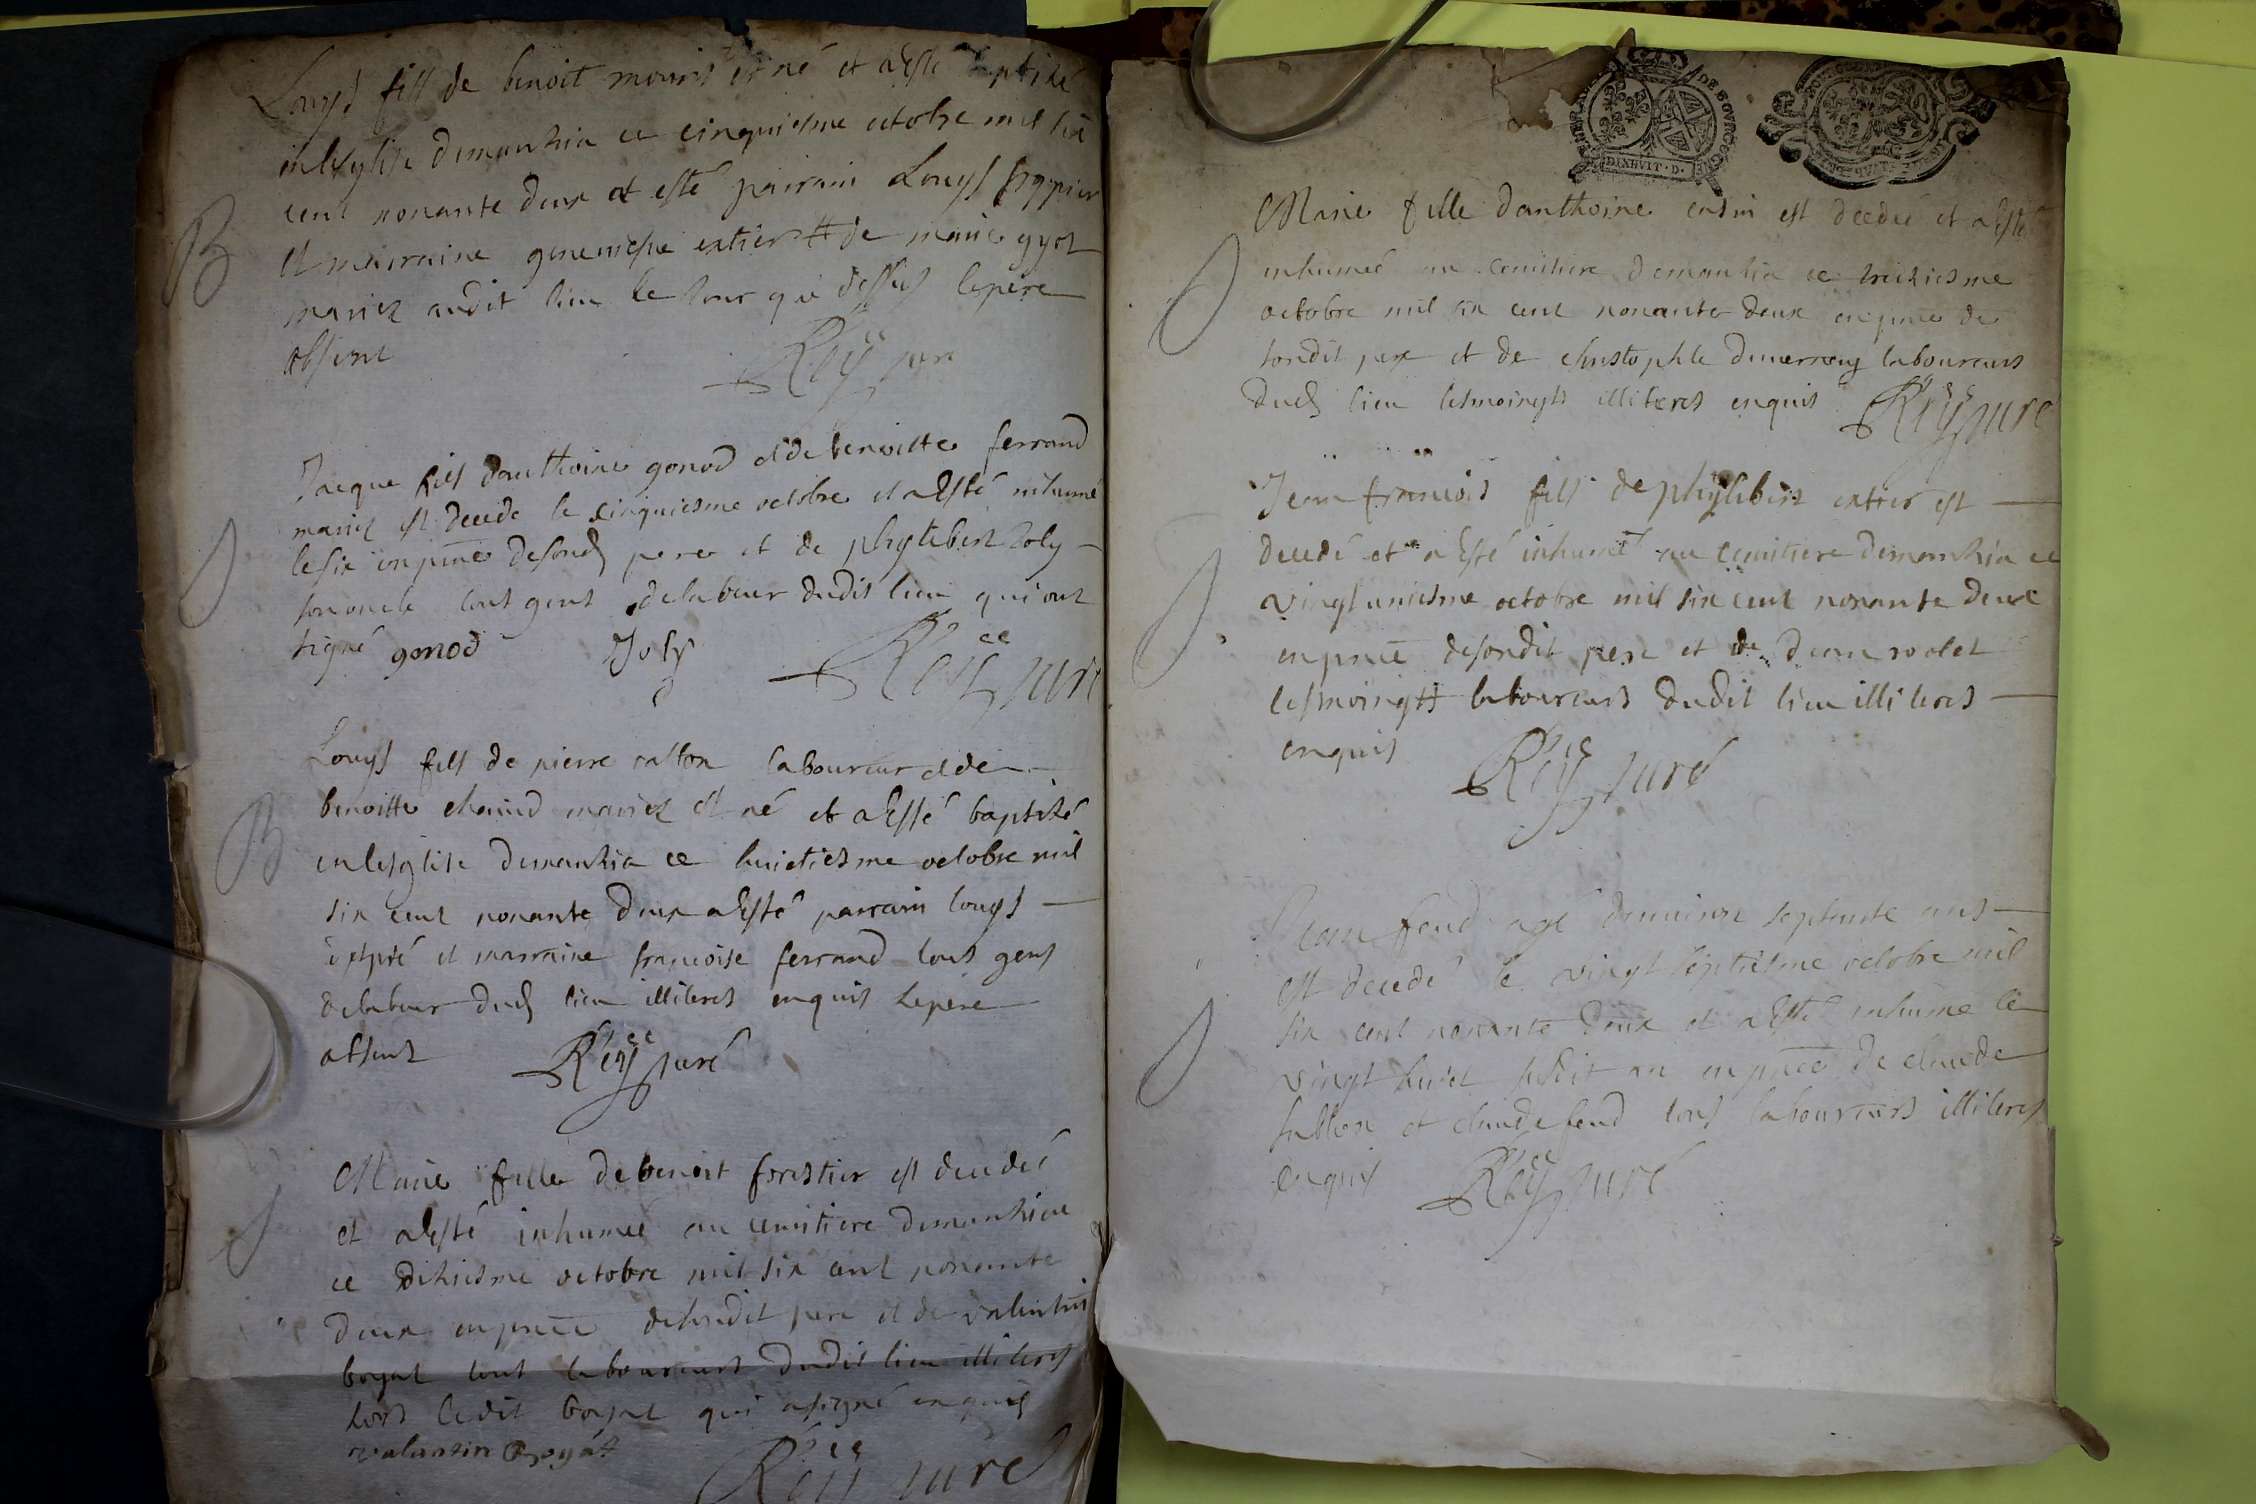 Louys fils de benoit mouris est né et a Esté baptisé
en lesglise demanzia ce cinquiesme octobre mil six
cent nonante deux et esté parrain Louys
et mairraine extier de marie gyot
mariez audit lieu le Jour que dessus le pere
absent
Rey curé
B
Jacque fils d'anthoine gonod et de benoitte ferrand
mariez est decede le cinquiesme octobre et a Esté inhumé
le six en pnce de sond pere et de phylibert Joly
son oncle tous gens de labeur dudit lieu qui ont
signé gonod Joly
Rey curé
Louys fils de pierre laboureur et de
benoitte mariez est né et a Esté baptisé
en lesglise demanzia ce huictiesme octobre mil
six cent nonante deux a Esté parrain Louys
et marraine francoise ferrand tous gens
de labeur dud lieu illiteres enquis le pere
absent
Rey curé
B
Marie fille de benoit forestier est decedée
et a Esté inhumee au cemitiere demanzia
ce dixiesme octobre mil six cent nonante
deux en pnce de sondit pere et de valentin
boyat tous laboureurs dudit lieu illiteres
hors ledit boyat qui a signé enquis
valantin Boyat
Rey curé
Marie fille d'anthoine est decedé et a Esté
inhumeé au cemitiere demanzia ce treiziesme
octobre mil six cent nonante deux en pnce de
sondit pere et de christophle laboureurs
dud lieu tesmoingts illiteres enquis
Rey curé
Jean francois fils de phylibert extier est
decedé et a Esté inhumé au cemitiere demanzia ce
vingtuniesme octobre mil six cent nonante deux
en pnce de sondit pere et de Jean rolet
tesmoingts laboureurs dudit lieu illiteres
enquis
Rey curé
Jean feud agé denviron septante ans
est decedé le vingt septiesme octobre mil
six cent nonante deux et a Esté inhumé le
vingt huict susdit an en pnce de claude
et claude feud tous laboureurs illiteres
enquis
Rey curé